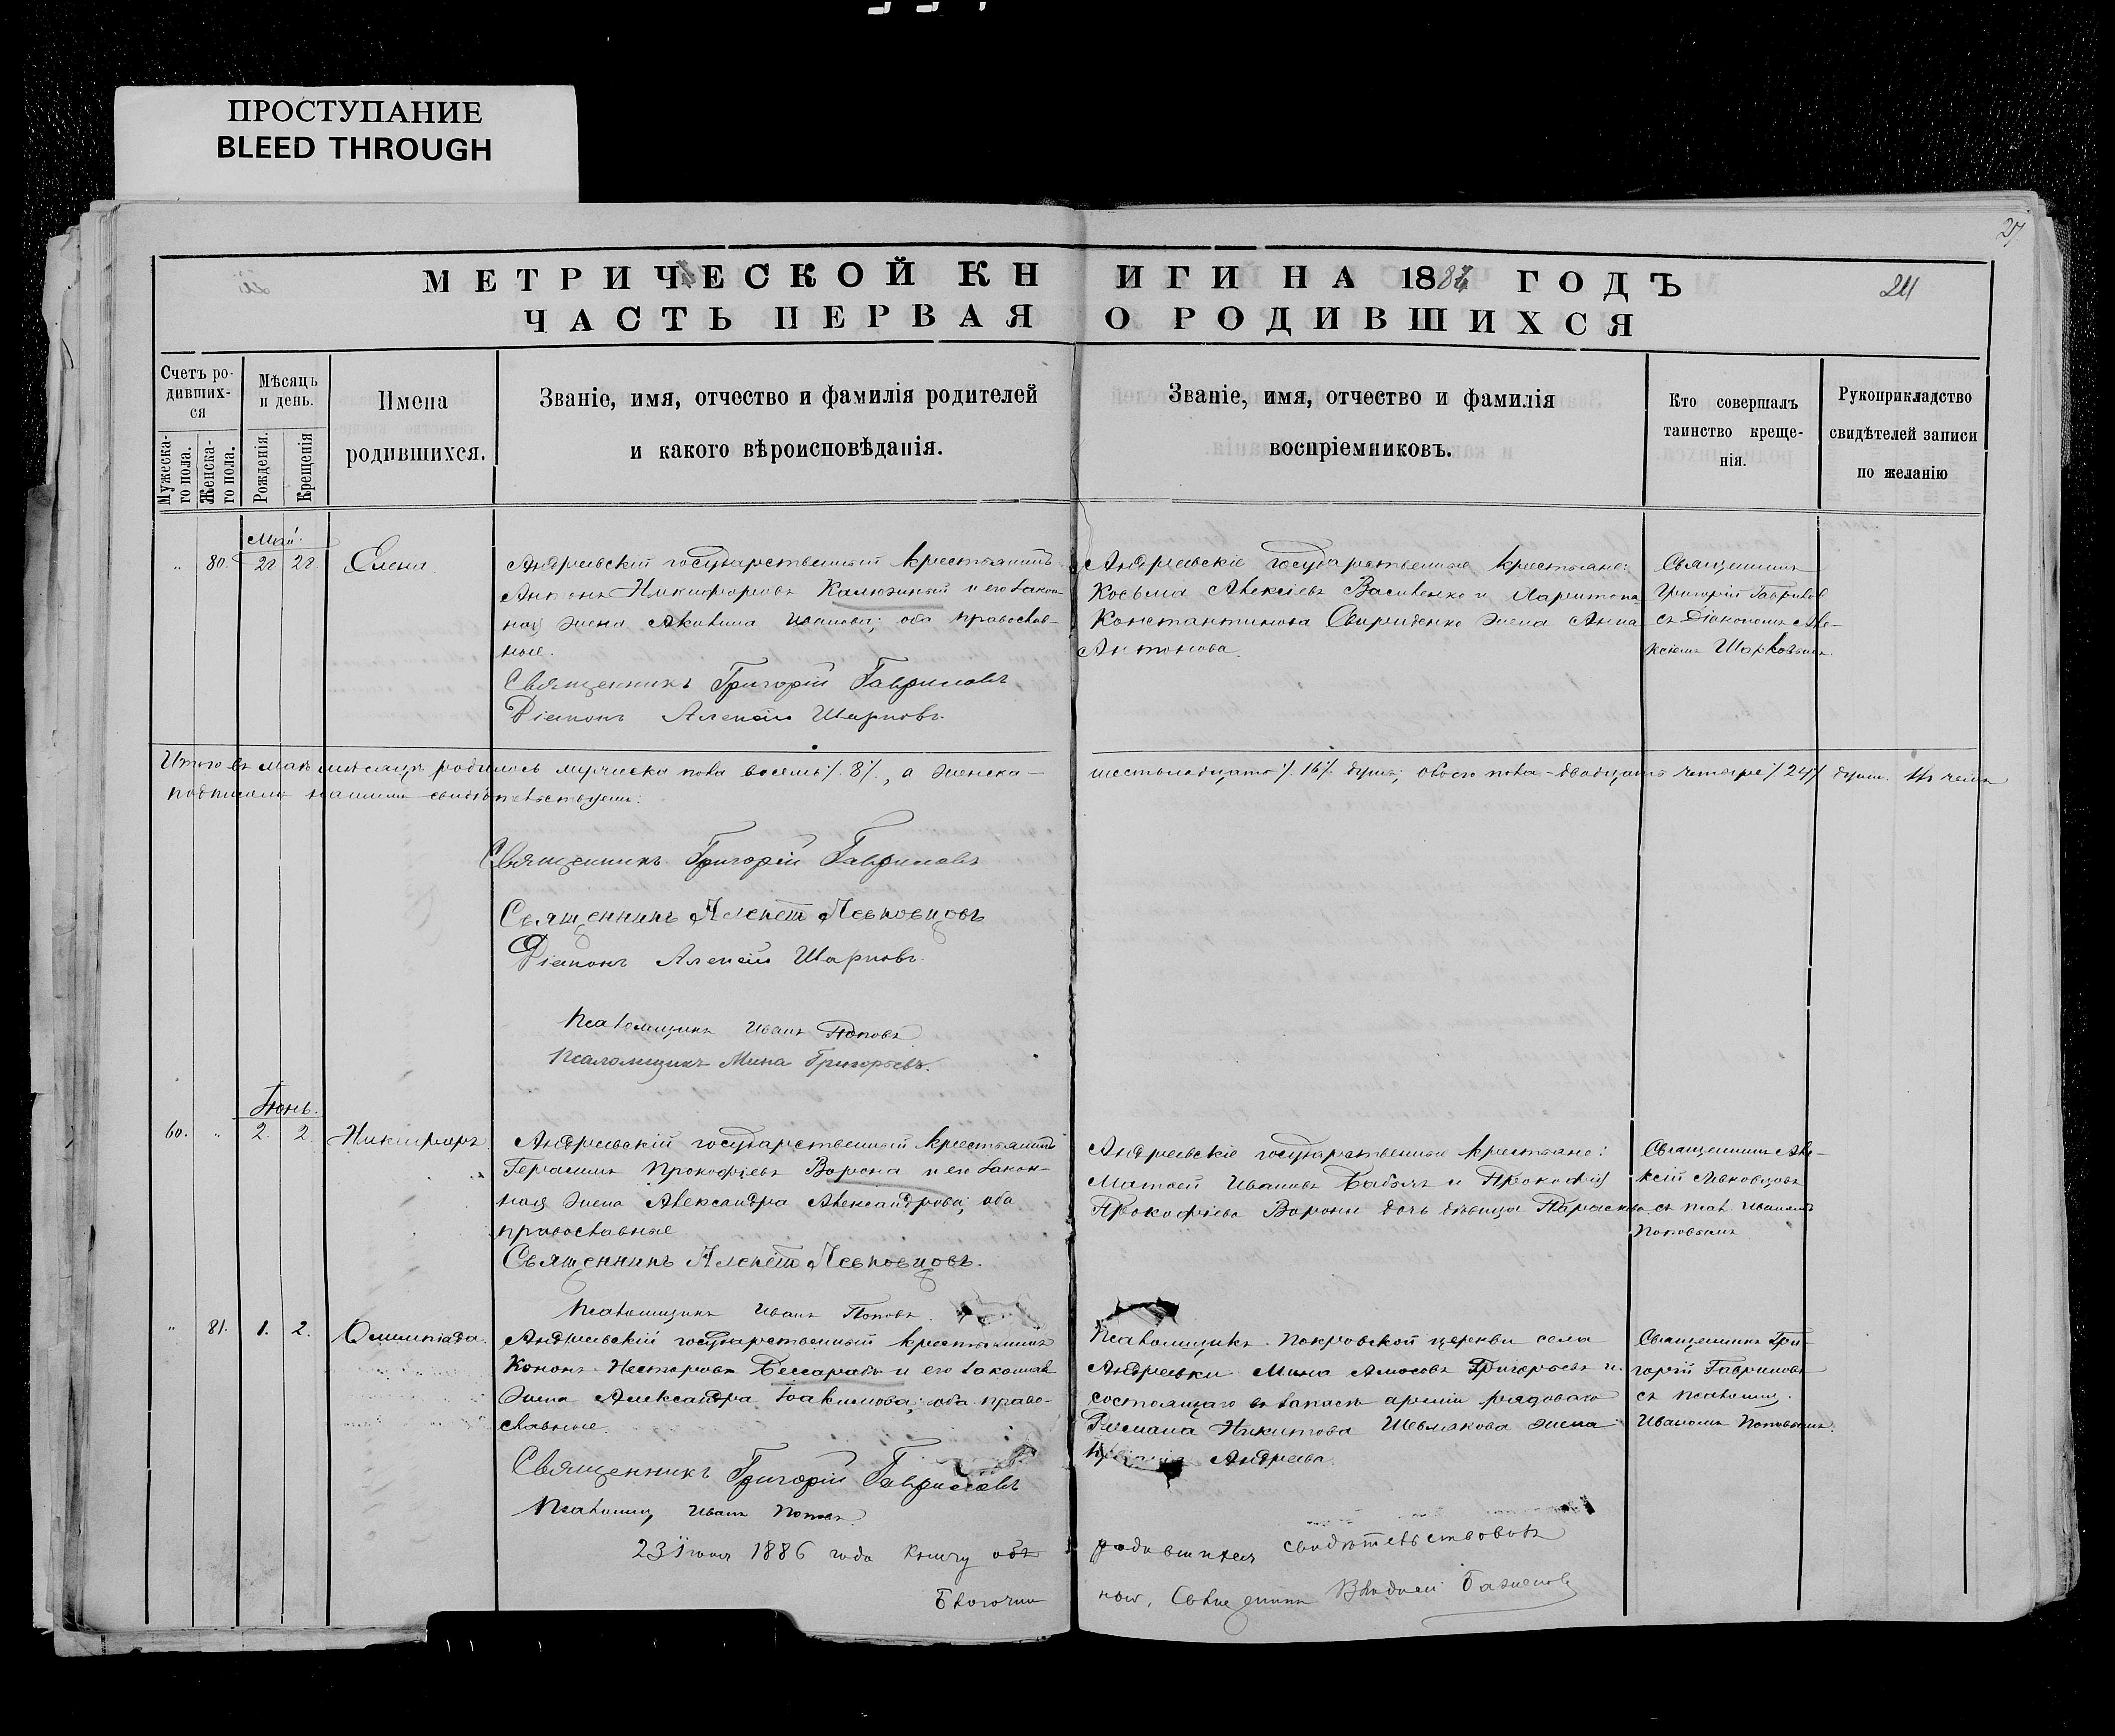 ПРОСТУПАНИЕ
BLEED THROUGH
27
МЕТРИЧЕСКОЙ КНИГИ НА 188 ГОДЪ
24
ЧАСТЬ ПЕРВАЯ О РОДИВШИХСЯ
Счетъ родившихся
Мужескаго пола.
Женскаго пола.
Мѣсяцъ и день.
Рожденія.
Крещенія
Имена
родившихся.
Званіе, имя, отчество и фамилія родителей
и какого вѣроисповѣданія.
Званіе, имя, отчество и фамилія
воспріемниковъ.
Кто совершалъ
таинство креще-
нія.
Рукоприкладство
свидѣтелей записи
по желанію
Май.
„ 80. Елена
Андреевскій государственный крестьянинъ
Антонъ Никифоровъ Калюзиный и его закон-
ная жена Акилина Иванова; оба православ-
ные.
Священникъ Григорій Гавриловъ
Діаконъ Алексій Шарковъ.
Андреевскіе государственные крестьяне:
Косьма Алексіевъ Василенко и Харитона
Константинова Свириденко жена Анна
Антонова.
Священникъ
Григорій Гаврилов
съ Діакономъ Але-
ксіемъ Шарковымъ
Итого въ маѣ мѣсяцѣ родилось мужеска пола восемь /. 8 /., а женска – шестьнадцать /. 16 /. душъ; обоего пола – двадцать четыре /. 24 /. душъ. Въ чемъ
подписомъ нашимъ свидѣтельствуемъ:
Священникъ Григорій Гавриловъ
Священникъ Алексѣй Левковцовъ
Діаконъ Алексій Шарковъ.
Псаломщикъ Иванъ Поповъ
Псаломщикъ Мина Григорьевъ.
Іюнь.
60. „ 2. 2. Никифоръ
Андреевскій государственный крестьянинъ
Герасимъ Прокофіевъ Ворона и его закон-
ная жена Александра Александрова; оба
православные
Священникъ Алексѣй Левковцовъ.
Псаломщикъ Иванъ Поповъ.
Андреевскіе государственные крестьяне:
Матѳей Ивановъ Бабичъ и Прокофія
Прокофіева Вороны дочь дѣвица Параскева
Священникъ Але-
ксій Левковцовъ
съ псал. Иваномъ
Поповымъ
„ 81. 1. 2. Олимпіада.
Андреевскій государственный крестьянинъ
Кононъ Несторовъ Бессарабъ и его законная
жена Александра Іоакимова; оба право-
славные.
Священникъ Григорій Гавриловъ
Псаломщ. Иванъ Поповъ.
Псаломщикъ Покровской церкви села
Андреевки Мина Амосовъ Григорьевъ и
состоящаго въ запасѣ арміи рядоваго
Романа Никитова Шевлякова жена
Андреева.
Священникъ Гри-
горій Гавриловъ
съ псаломщ.
Иваномъ Поповымъ.
23 1886 года книгу объ родившихся свидѣтельствовалъ
Благочинный, Священникъ